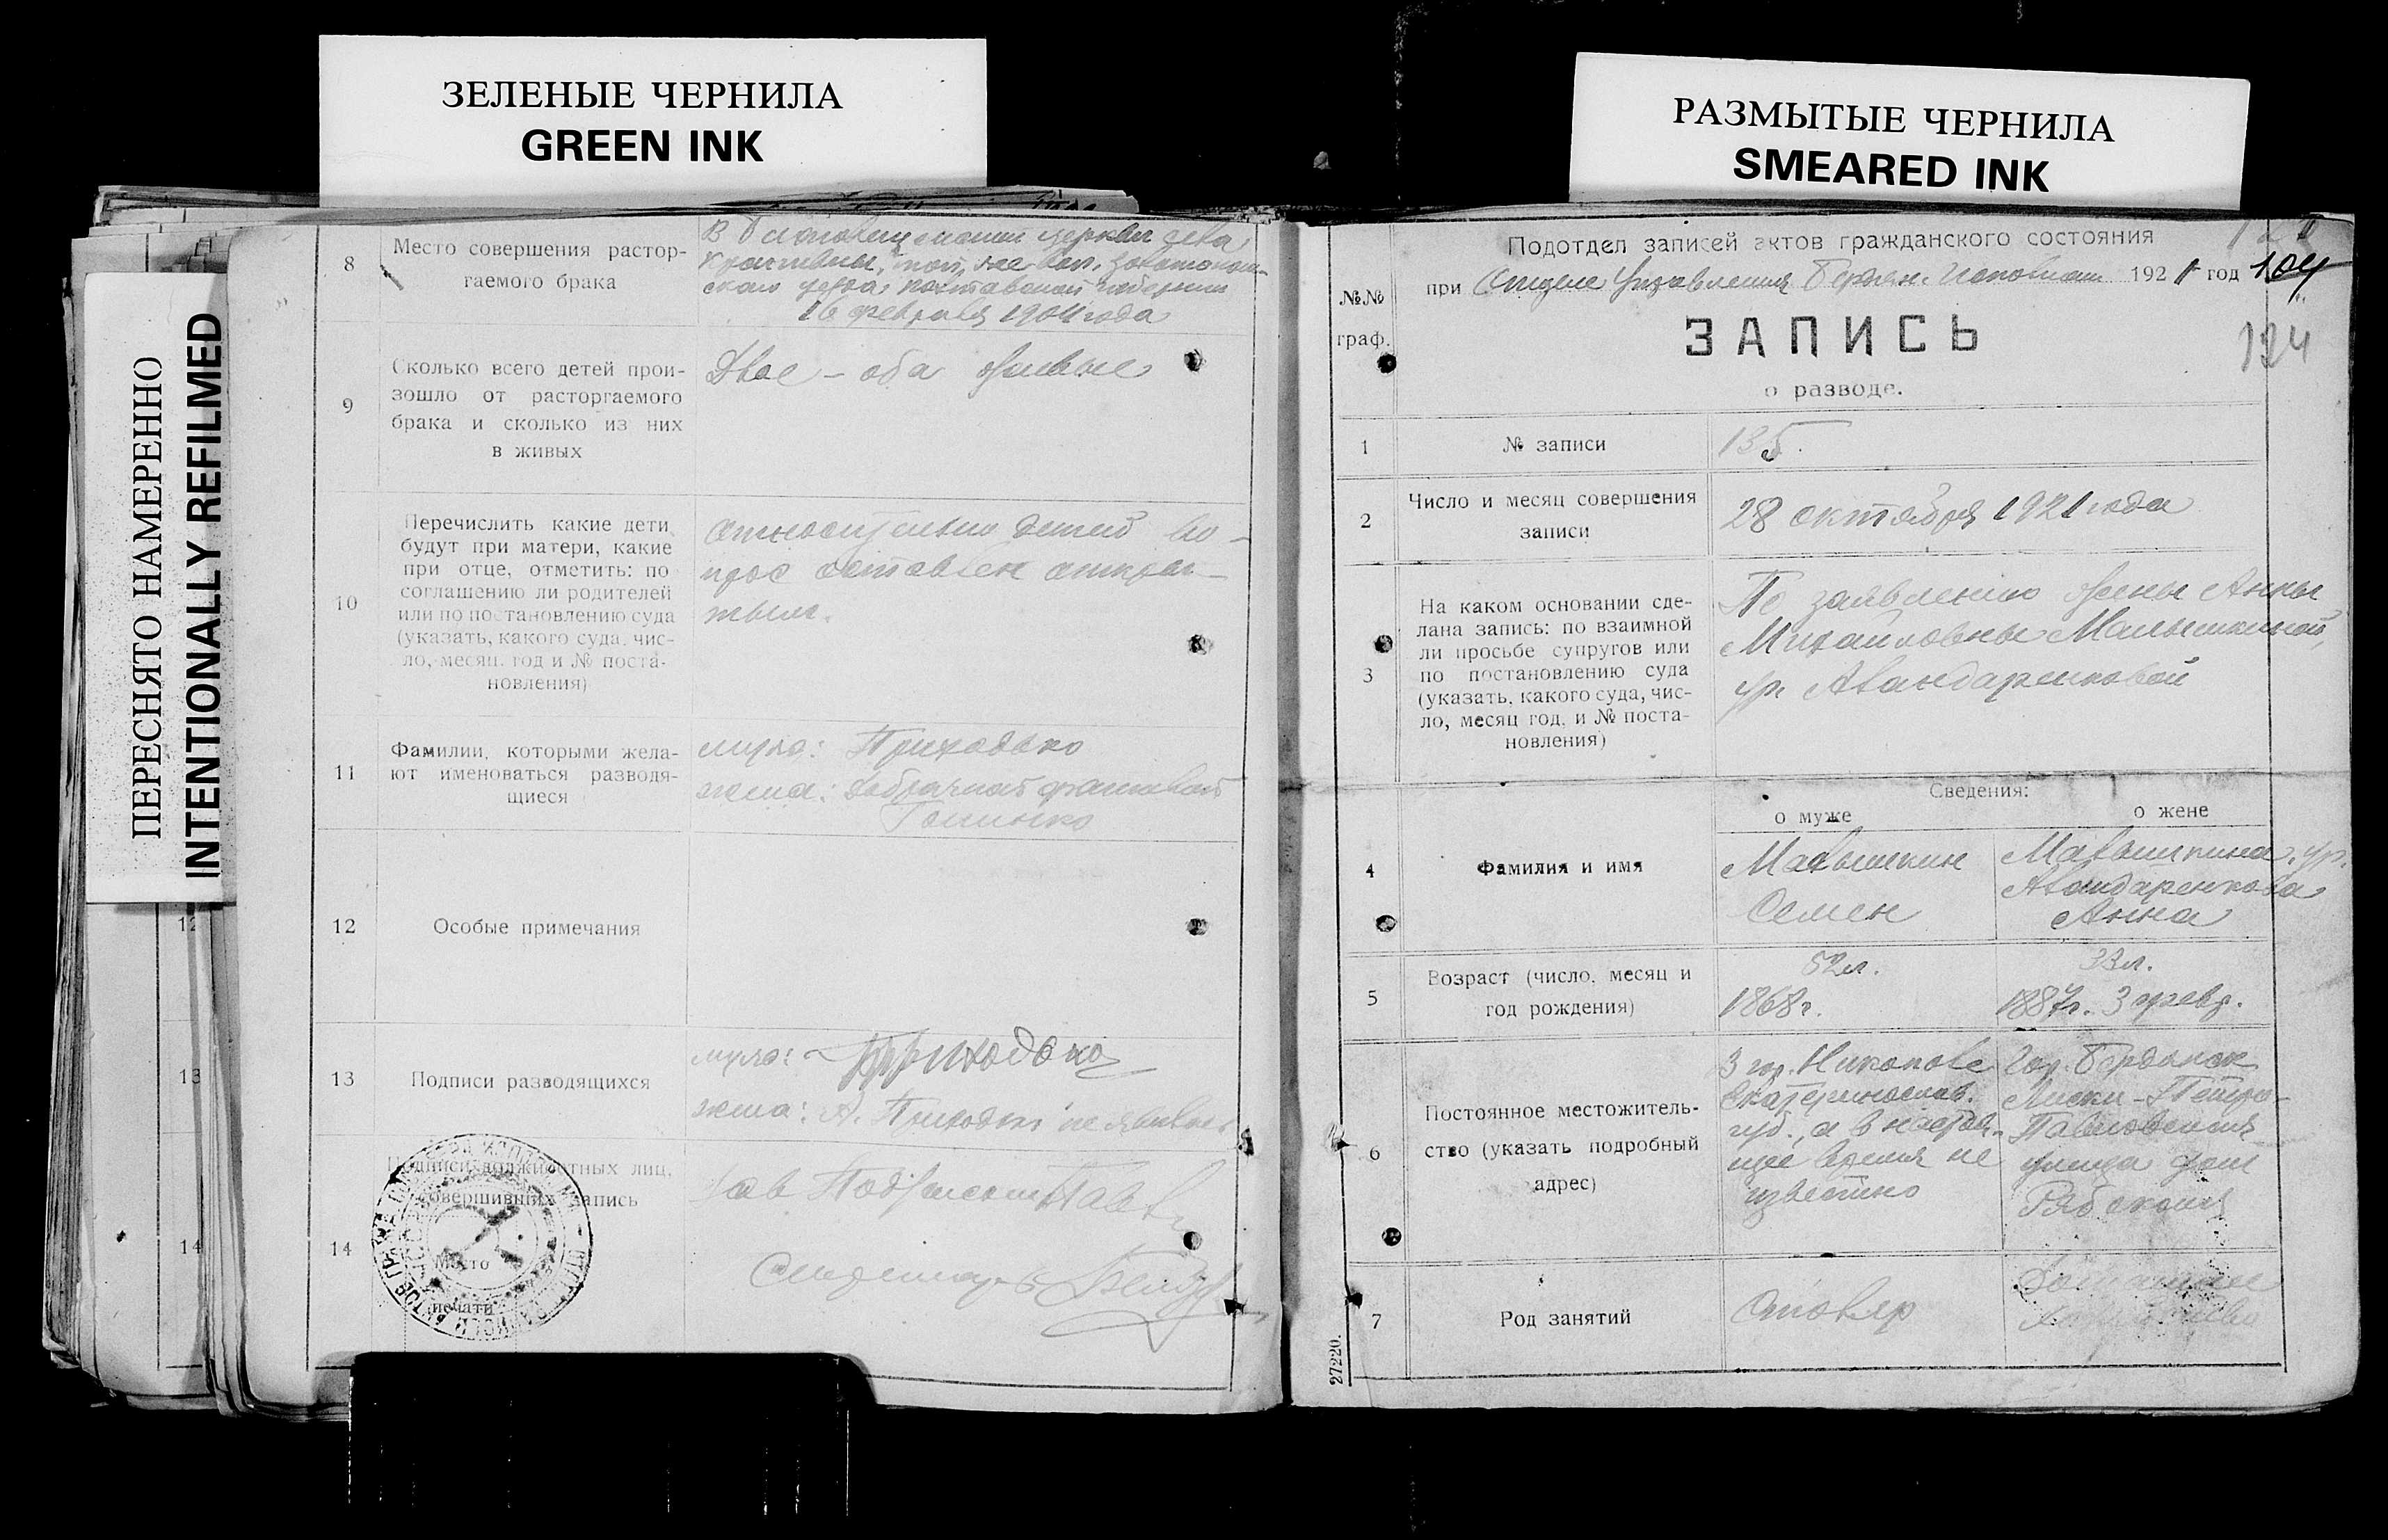 ЗЕЛЕНЫЕ ЧЕРНИЛА
GREEN INK
РАЗМЫТЫЕ ЧЕРНИЛА
SMEARED INK
ПЕРЕСНЯТО НАМЕРЕННО
INTENTIONALLY REFILMED
12
13
14
8
Место совершения растор-
гаемого брака
церкви села
16 февраля 1904 года
9
Сколько всего детей прои-
зошло от расторгаемого
брака и сколько из них
в живых
Двое – оба живые
10
Перечислить какие дети
будут при матери, какие
при отце, отметить: по
соглашению ли родителей
или по постановлению суда
(указать, какого суда, чис-
ло, месяц, год и № поста-
новления)
относительно детей во-
прос оставлен откры-
тым.
11
Фамилии, которыми жела-
ют именоваться разводя-
щиеся
мужа: Приходько
жена: добрачной фамилией
12
Особые примечания
13
Подписи разводящихся
мужа: Приходько
жена: А. Приходько
14
Подписи должностных лиц,
совершивших запись
Место
печати
Зав
Подотдел записей актов гражданского состояния
при Отделе Управления Бердян. Исполком 1921 год
104
124
№№
граф.
ЗАПИСЬ
о разводе.
1
№ записи
135.
2
Число и месяц совершения
записи
28 октября 1921 года
3
На каком основании сде-
лана запись: по взаимной
ли просьбе супругов или
по постановлению суда
(указать, какого суда, чис-
ло, месяц, год, и № поста-
новления)
По заявлению жены Анны
Михайловны Малышкиной,
ур.
Сведения:
о муже
о жене
4
Фамилия и имя
Малышкин
Семен
Малышкина, ур.
Анна
5
Возраст (число, месяц и
год рождения)
52 л.
1868 г.
33 л.
1887 г. 3 февр.
6
Постоянное местожитель-
ство (указать подробный
адрес)
гор. Никополе
Екатеринослав.
губ., а в настоя-
щее время не
известно
Гор. Бердянск
Лиски – Петро-
Павловская
улица дом
7
Род занятий
Столяр
Домашнее
27220.